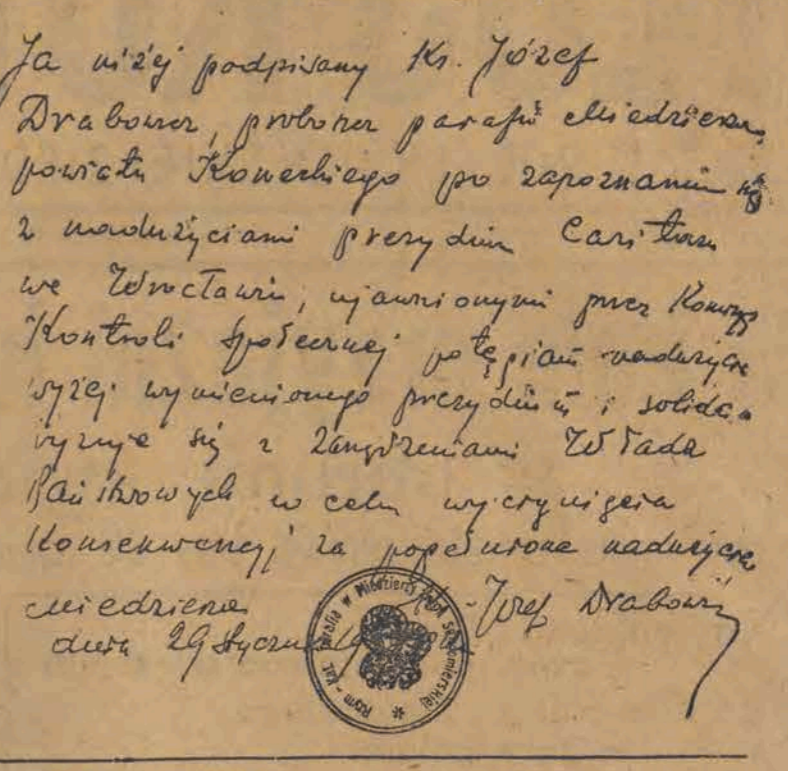 Ja niżej podpisany Ks. Józef
Drabowicz, proboszcz parafii Miedzierza,
powiatu Koneckiego po zapoznaniu się
z nadużyciami prezydium Caritasu
we Wrocławiu, ujawnionymi przez Komisję
Kontroli Społecznej potępiam nadużycia
wyżej wymienionego prezydium i solida-
ryzuję się z zarządzeniami Władz
Państwowych w celu wyciągnięcia
Konsekwencji za popełnione nadużycia
Miedzierza Józef
dnia 29 stycznia
Rzym-Kat. Parafia w Miedzierzy Sandomierskiej